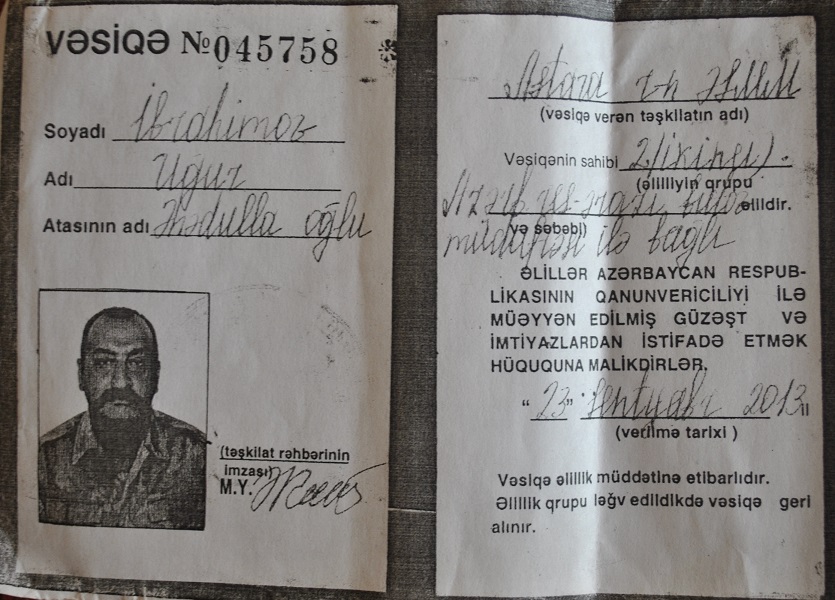 VƏSİQƏ №045758
Soyadı İbrahimov
Adı Uğur
Atasının adı oğlu
(təşkilat rəhbərinin
imzası)
M.Y.
Astara r-n
(vəsiqə verən təşkilatın adı)
Vəsiqənin sahibi 2/ikinçi/.
(əlilliyin qrupu
Azərb əlildir.
və səbəbi)
müdafiəsi ilə bağlı
ƏLİLLƏR AZƏRBAYCAN RESPUB-
LİKASININ QANUNVERİCİLİYİ İLƏ
MÜƏYYƏN EDİLMİŞ GÜZƏŞT VƏ
İMTİYAZLARDAN İSTİFADƏ ETMƏK
HÜQUQUNA MALİKDİRLƏR.
“23” sentyabr 2013
(verilmə tarixi )
Vəsiqə əlillik müddətinə etibarlıdır.
Əlillik qrupu ləğv edildikdə vəsiqə geri
alınır.